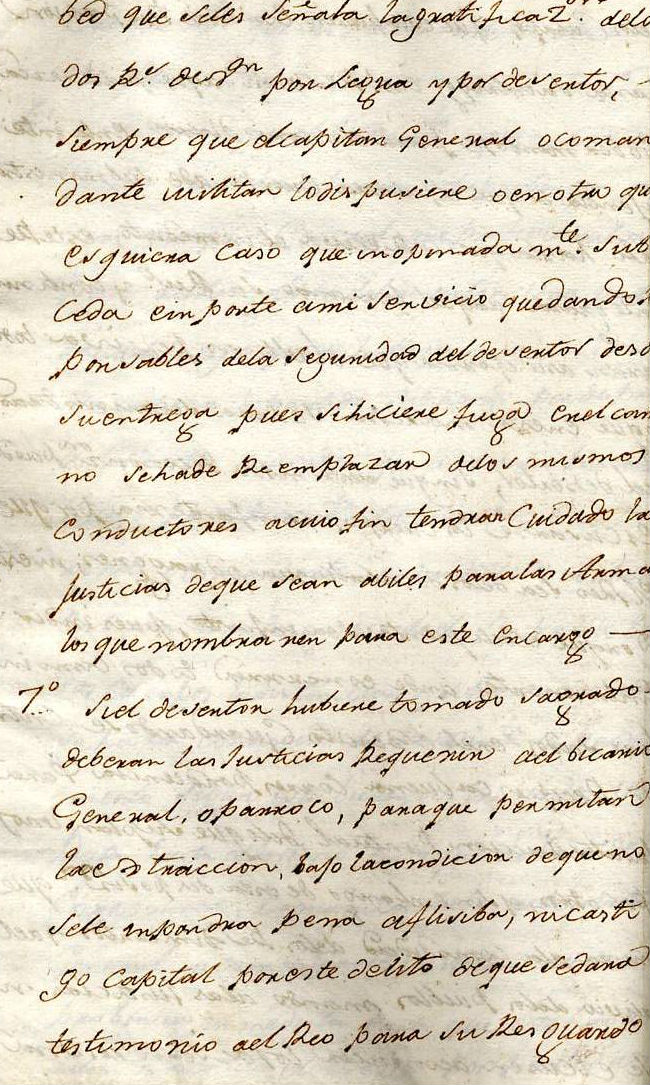 bed que seles señala lagratificaz.on delo
dos R.s de v.on por Legua y por desertor,
siempre que elcapitan General o coman
dante militar lodispusiere o en otra qu
esquiera Caso que inopinada m.te sub
Ceda e inporte ami servicio quedando
ponsables dela segunidad del desertor des
su entrega pues si hiciere fuga enel cam
no sehade Reemplazar delos mismos
Conductores acuio fin tendran Cuidado la
Justicias deque sean abiles paralas Arma
los que nombraren para este encargo —
7.o Siel desertor hubiere tomado sagrado
deberan las Justicias Requerir ael bicario
General, o parroco, paraque permitan
la extraccion, bajo lacondicion dequeno
sele inpondra pena aflisiba, ni casti
go Capital por este delito deque sedara
testimonio ael Reo para su Resguardo